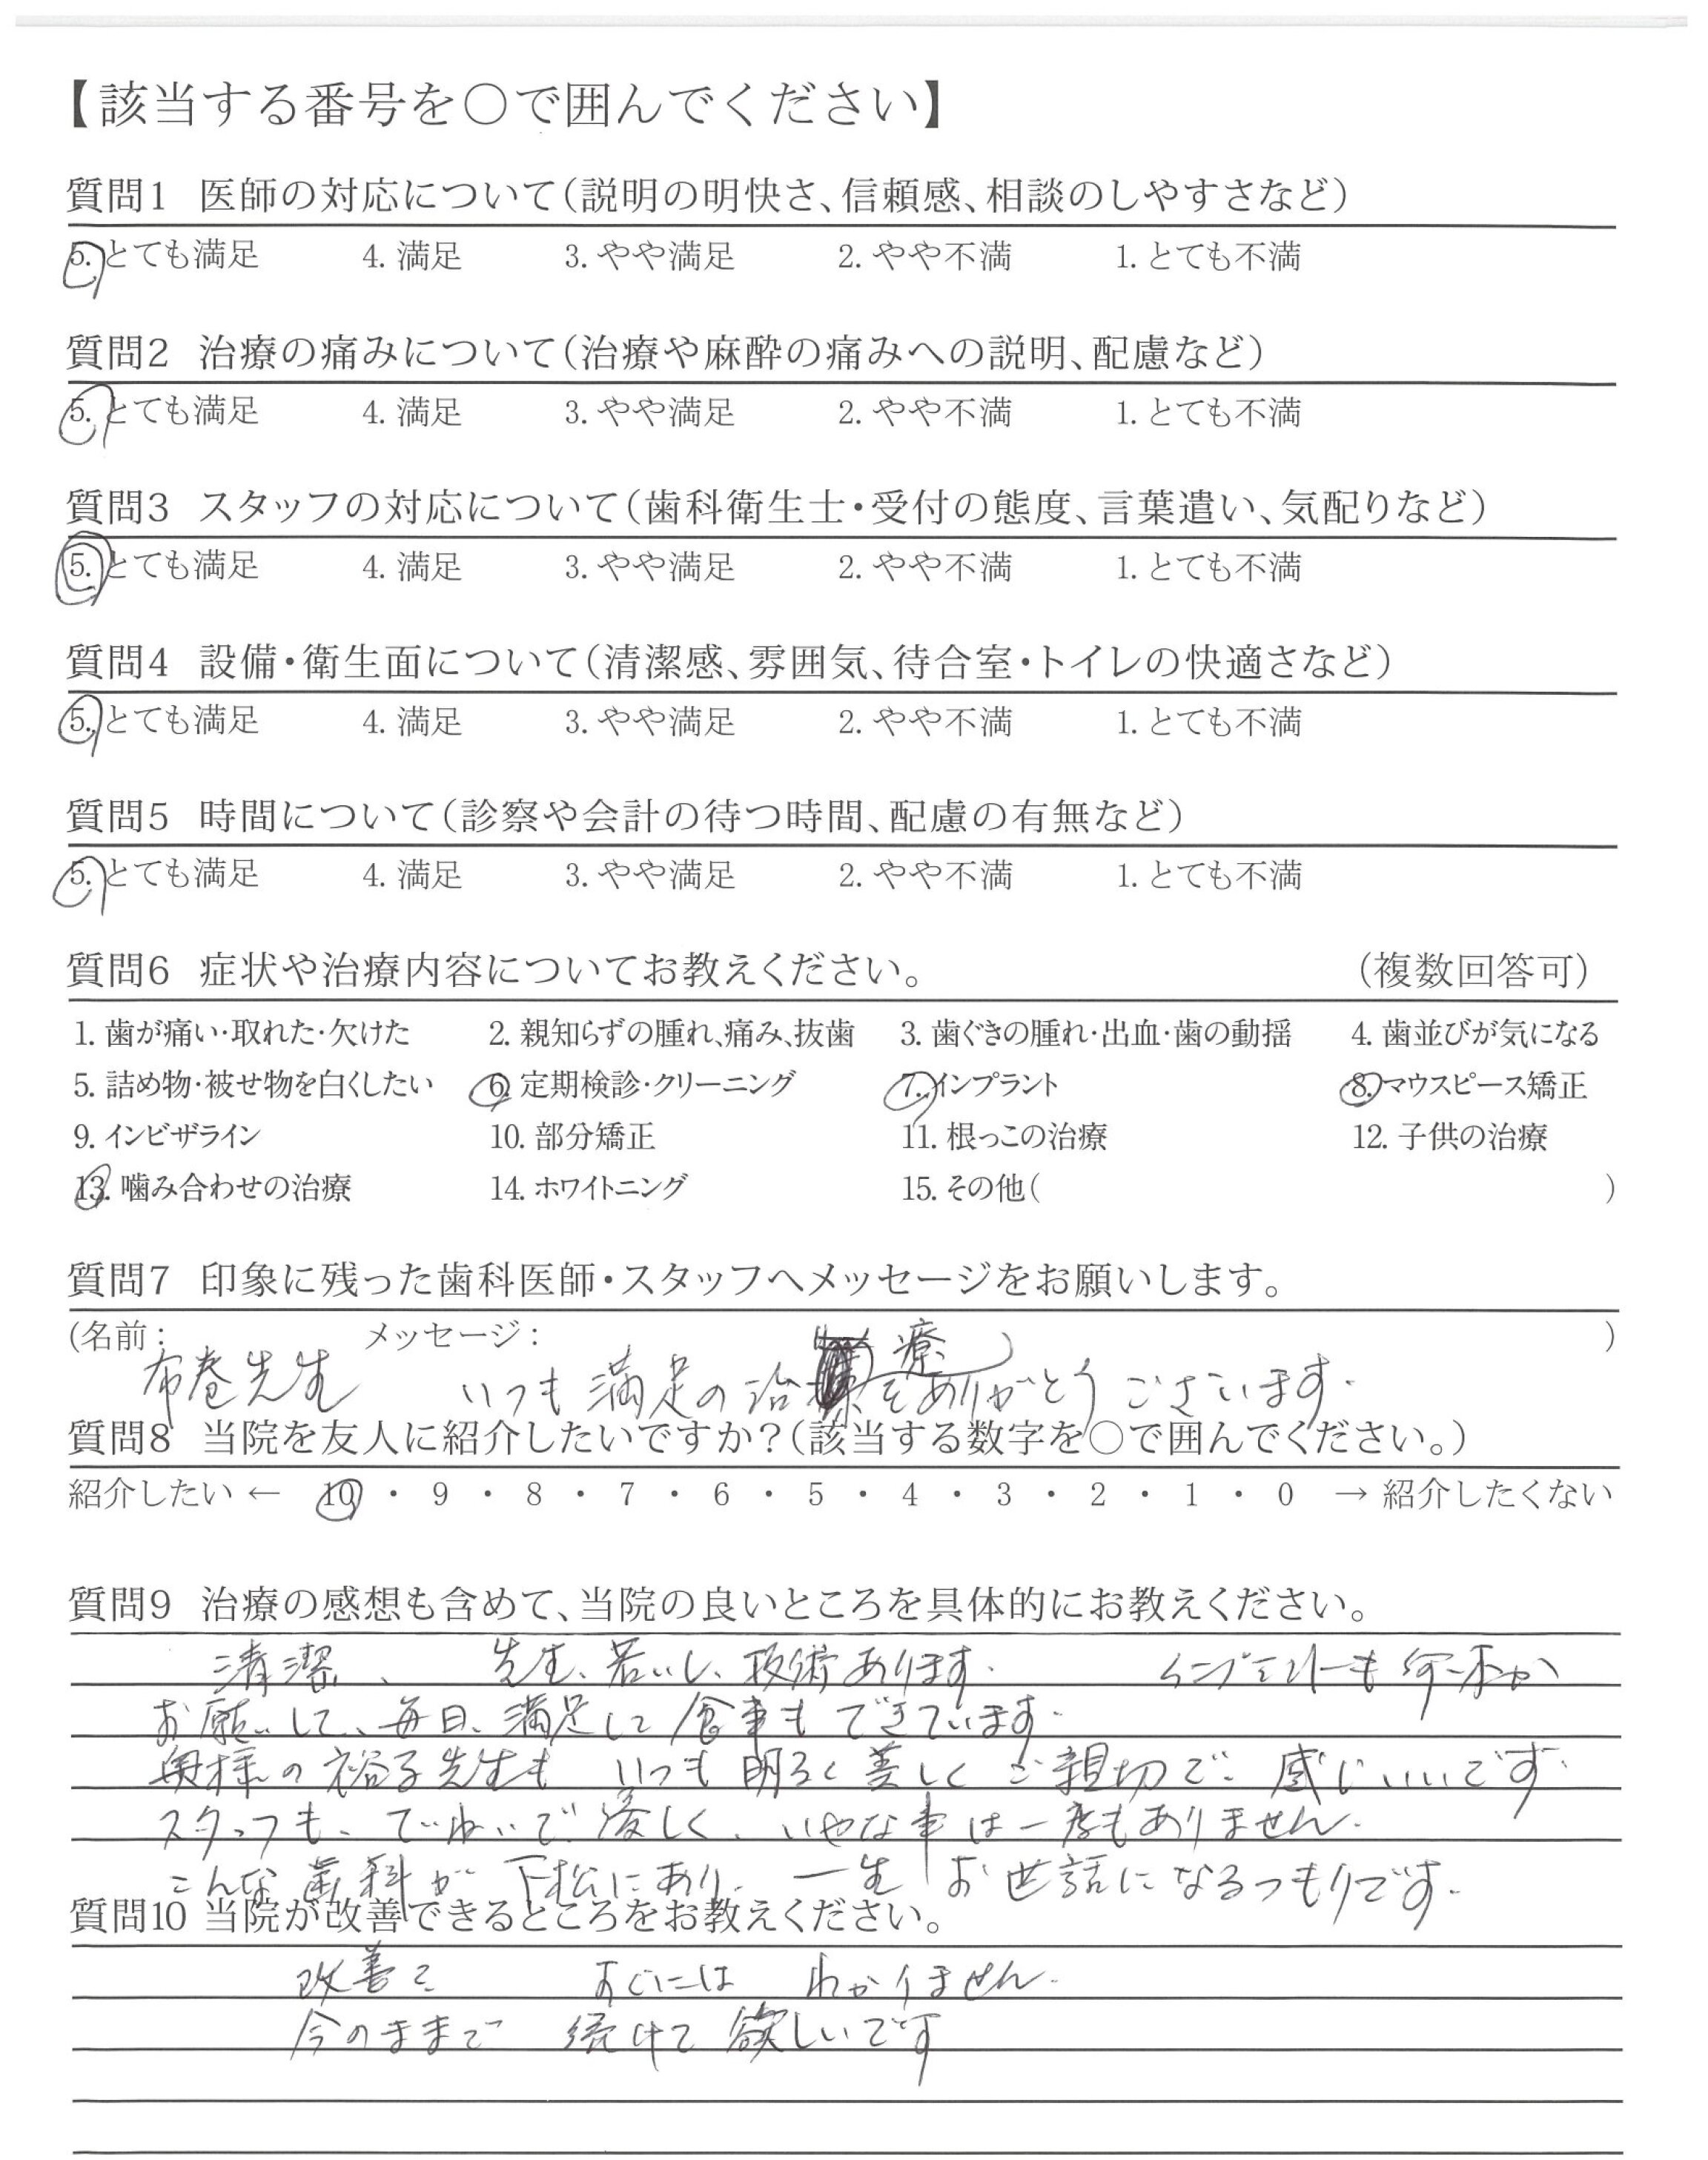 【該当する番号を○で囲んでください】
質問1 医師の対応について(説明の明快さ、信頼感、相談のしやすさなど)
5. とても満足 4. 満足 3. やや満足 2. やや不満 1. とても不満
質問2 治療の痛みについて(治療や麻酔の痛みへの説明、配慮など)
5. とても満足 4. 満足 3. やや満足 2. やや不満 1. とても不満
質問3 スタッフの対応について(歯科衛生士・受付の態度、言葉遣い、気配りなど)
5. とても満足 4. 満足 3. やや満足 2. やや不満 1. とても不満
質問4 設備・衛生面について(清潔感、雰囲気、待合室・トイレの快適さなど)
5. とても満足 4. 満足 3. やや満足 2. やや不満 1. とても不満
質問5 時間について(診察や会計の待つ時間、配慮の有無など)
5. とても満足 4. 満足 3. やや満足 2. やや不満 1. とても不満
質問6 症状や治療内容についてお教えください。 (複数回答可)
1. 歯が痛い・取れた・欠けた 2. 親知らずの腫れ、痛み、抜歯 3. 歯ぐきの腫れ・出血・歯の動揺 4. 歯並びが気になる
5. 詰め物・被せ物を白くしたい 6. 定期検診・クリーニング 7. インプラント 8. マウスピース矯正
9. インビザライン 10. 部分矯正 11. 根っこの治療 12. 子供の治療
13. 噛み合わせの治療 14. ホワイトニング 15. その他( )
質問7 印象に残った歯科医師・スタッフへメッセージをお願いします。
(名前: メッセージ: )
布巻先生 いつも満足の治療をありがとうございます.
質問8 当院を友人に紹介したいですか?(該当する数字を○で囲んでください。)
紹介したい ← 10 ・ 9 ・ 8 ・ 7 ・ 6 ・ 5 ・ 4 ・ 3 ・ 2 ・ 1 ・ 0 → 紹介したくない
質問9 治療の感想も含めて、当院の良いところを具体的にお教えください。
清潔、 先生、若いし、技術あります. インプラントも何本か
お願いして、毎日、満足して食事もできています.
奥様の裕子先生も いつも明るく美しくご親切で、感じいいです.
スタッフも、ていねいで優しく、いやな事は一度もありません.
こんな歯科が下松にあり、一生お世話になるつもりです.
質問10 当院が改善できるところをお教えください。
改善て すぐには わかりません.
今のままで 続けて欲しいです